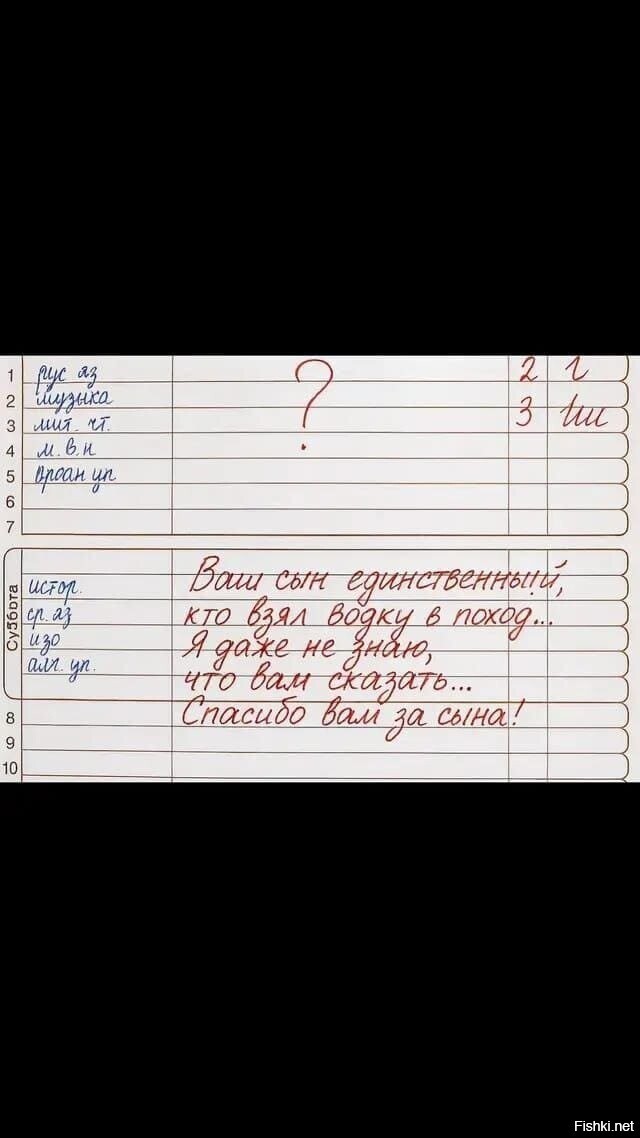 1 рус яз 2 г
2 музыка
3 мит. чт. 3 Iш
4 м.в.н
5 вроан уп
6
7
?
Суббота
истор.
ср. аз
изо
алг. уп.
Ваш сын единственный,
кто взял водку в поход...
Я даже не знаю,
что вам сказать...
Спасибо вам за сына!
8
9
10
Fishki.net